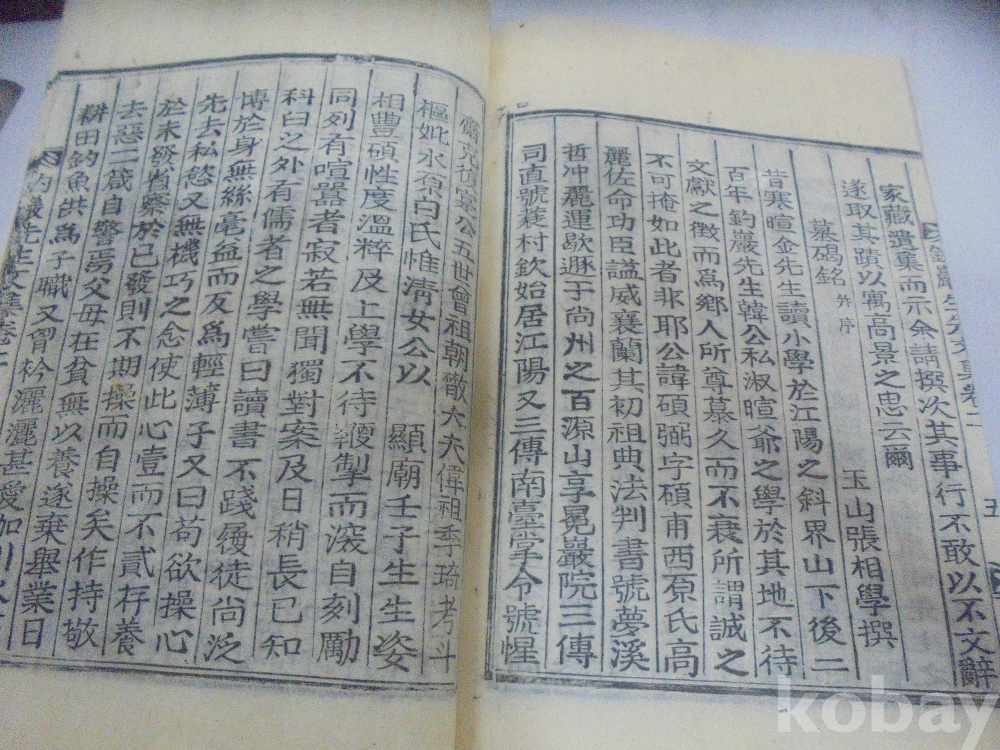 家藏遺集而示余請撰次其事行不敢以不文辭
遂取其蹟以寓高景之忠云爾
玉山張相學撰
墓碣銘 幷序
昔寒暄金先生讀小學於江陽之斜界山下後二
百年釣巖先生韓公私淑暄爺之學於其地不待
文獻之徵而爲鄕人所尊慕久而不衰所謂誠之
不可掩如此者非耶公諱碩弼字碩甫西原氏高
麗佐命功臣諡威襄蘭其初祖典法判書號夢溪
哲冲麗運歇遯于尙州之百源山享晃巖院三傳
司直號蓑村欽始居江陽又三傳南臺掌令號惺
齋克俊寔公五世曾祖朝散大夫偉祖季琦考斗
樞妣水原白氏惟淸女公以 顯廟壬子生生姿
相豊碩性度溫粹及上學不待鞭掣而滾自刻勵
同列有喧囂者寂若無聞獨對案及日稍長已知
科臼之外有儒者之學嘗曰讀書不踐履徒尙泛
博於身無絲毫益而反爲輕薄子又曰苟欲操心
先去私慾又無機巧之念使此心壹而不貳存養
於未發省察於已發則不期操而自操矣作持敬
去惡二箴自警焉父母在貧無以養遂棄擧業日
耕田釣魚供爲子職又胷衿灑灑甚愛加川
kobay